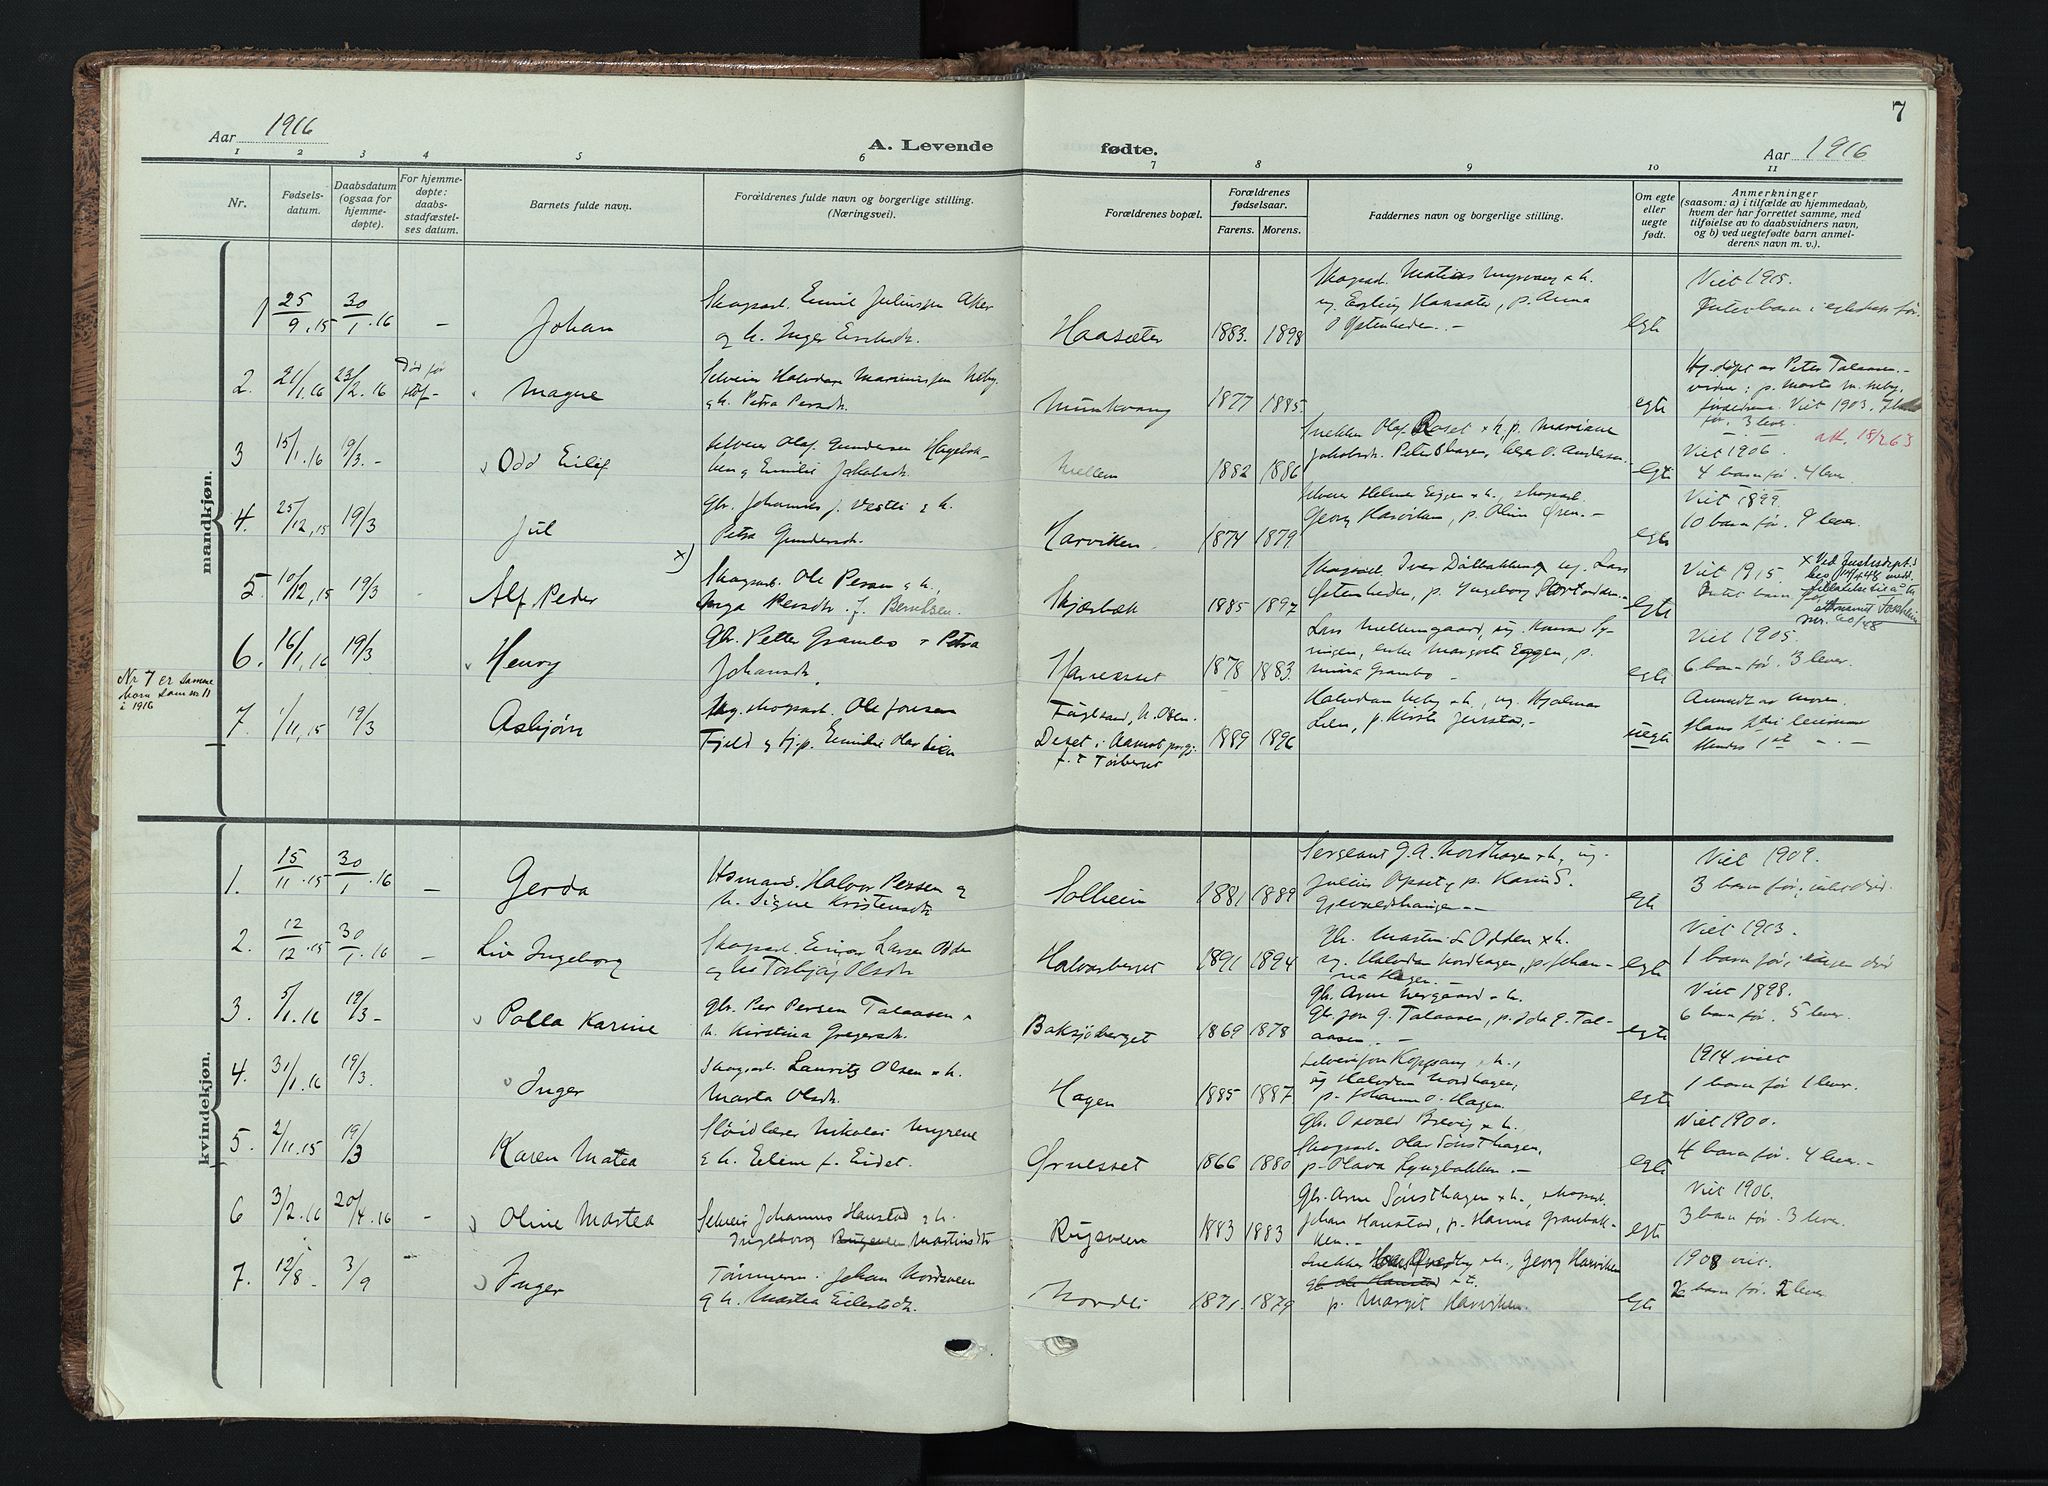 7
Aar 1916
A. Levende fødte.
Aar 1916
1 2 3 4 5 6 7 8 9 10 11
Nr.
Fødsels-
datum.
Daabsdatum
(ogsaa for
hjemme-
døpte).
For hjemme-
døpte:
daabs-
stadfæstel-
ses datum.
Barnets fulde navn.
Forældrenes fulde navn og borgerlige stilling.
(Næringsvei).
Forældrenes bopæl.
Forældrenes
fødselsaar.
Farens. Morens.
Faddernes navn og borgerlige stilling.
Om egte
eller
uegte
født.
Anmerkninger
(saasom: a) i tilfælde av hjemmedaab,
hvem der har forrettet samme, med
tilføielse av to daabsvidners navn,
og b) ved uegtefødte barn anmel-
derens navn m. v.).
mandkjøn.
1 25/9.15 30/1.16 – Johan
Skogsarb. Emil Juliussen Aker
og h. Inger
Haasæter 1883. 1898
Skogsarb. Matias Myrvang & h.
ug. Erling Haasæter, p. Anna
O Østenheden. –
egte
Viet 1905.
2. 21/1.16 23/2.16 Død før Magne
Selveier Halvdan Marinussen Neby
& h. Petra Persdt.
Munkvang 1877 1885.
egte
Hj. døpt av Peter Talaasen. –
p. Marte M. Neby,
forældrene. Viet 1903.
før, 3 lever.
3 15/1.16 19/3. – Odd Eilif
selveier Olaf Gundersen Hagebak-
ken & Emilie Jakobsdt.
Mellem 1882 1886
Snekker Olaf Roset & h. p. Mariane
Jakobsdt. Peter Shagen, O. Andersen
egte
18/2 63
Viet 1906.
4 barn før. 4 lever.
4. 25/12.15 19/3 Jul
Gbr. Johannes J. Vestli & h.
Petra Gundersdt.
Harviken. 1874 1879.
Selveier Helmer Eggen & h., skogsarb.
Georg Harviken, p. Oline Øren. –
egte
Viet 1899.
10 barn før. 9 lever.
5. 10/12.15 19/3 Alf Peder x)
Skogsarb. Ole Persen & h.
Inga Persdt. f. Berntsen.
Skjærbæk 1885 1897
Skogsarb. Iver Dølbakken, ug. Lars
Østenheden, p. Ingeborg
egte
Viet 1915.
Intet barn før
x Ved Justisdept.s
bes. 14/4 48 medd.
tillatelse til å ta
nr. 60/48
6. 16/1.16 19/3 Henry
Gbr. Petter Grambo & Petra
Johansdt.
Harresset 1878 1883.
Lars Mellemgaard, ug. Konrad Ly-
ningen, enke Margrete Eggen, p.
Mina Grambo –
egte
Viet 1905.
6 barn før. 3 lever.
Nr 7 er samme
barn som nr 11
i 1916
7. 1/11.15 19/3 Asbjørn
Ug. skogsarb. Ole Jonsen
Fjeld & tj.p. Emilie Olav Lien
Fuglsand, N. Osen.
Deset i Aamot prgj.
f. t. Torberget
1889 1896
Halvdan Neby & h., ug. Hjalmar
Lien, p. Kirsti Jensstad. –
uegte
Anmeldt av moren.
Hans 2det leiermaal
Hendes 1ste – . –
kvindekjøn.
1. 15/11.15 30/1.16 – Gerda
Husmand. Halvor Persen &
h. Signe Kristensdt.
Solheim 1881 1889
Sergeant G. A. Nordhagen & h., ug.
Julius Opset, p. Karin S.
Gjevaldshaugen –
egte
Viet 1909.
3 barn før,
2. 12/12.15 30/1.16 – Liv Ingeborg
Skogsarb. Einar Larsen Odden
& h. Torbjøg Olsdt.
Halvorsberget 1891 1894
Gbr. Martin L Odden & h.
ug. Halvdan Nordhagen, p. Johan-
na Hagen. –
egte
Viet 1913.
1 barn før, ingen død
3. 5/1.16 19/3 – Polla Karine
Gbr. Per Persen Talaasen &
h. Kirstina Gregersdt.
Baksjøberget 1869 1878
Gbr. Arne Nergaard & h.
Gbr. Jon G. Talaasen, p. Ida G. Tal-
aasen. –
egte
Viet 1898.
6 barn før. 5 lever.
4. 31/1.16 19/3. Inger
Skogsarb. Lauritz Olsen & h.
Marta Olsdt.
Hagen 1885 1887
Selveier Jon Koppang & h.,
ug Halvdan Nordhagen,
p. Johanne O. Hagen.
egte
1914 viet
1 barn før 1 lever.
5. 2/11.15 19/3 Karen Matea
Sløidlærer Nikolai Myrene
& h. Eline f. Eidet.
Ørnesset 1866 1880
Gbr. Osvald Brevig & h.
Skogsarb. Olav Sønsthagen,
p. Olava Lyngbakken. –
egte
Viet 1900.
4 barn før. 4 lever. –
6 3/2.16 20/4.16 – Oline Martea
Selveier Johannes Haustad & h.
Ingeborg Martinsdtr
Rugsveen 1883 1883
Gbr. Arne Sønsthagen & h., skogsarb.
Johan Haustad, p. Hanna Granbak-
ken. –
egte
Viet 1906.
3 barn før. 3 lever.
7. 12/8 – 3/9 – Inger
Tømmerm. Johan Nordsveen
& h. Martea Eilertsdt.
Nordli 1871. 1879
Snekker & h., Georg Harviken
p. Margit Harviken.
egte
1908 viet.
2 barn før. 2 lever